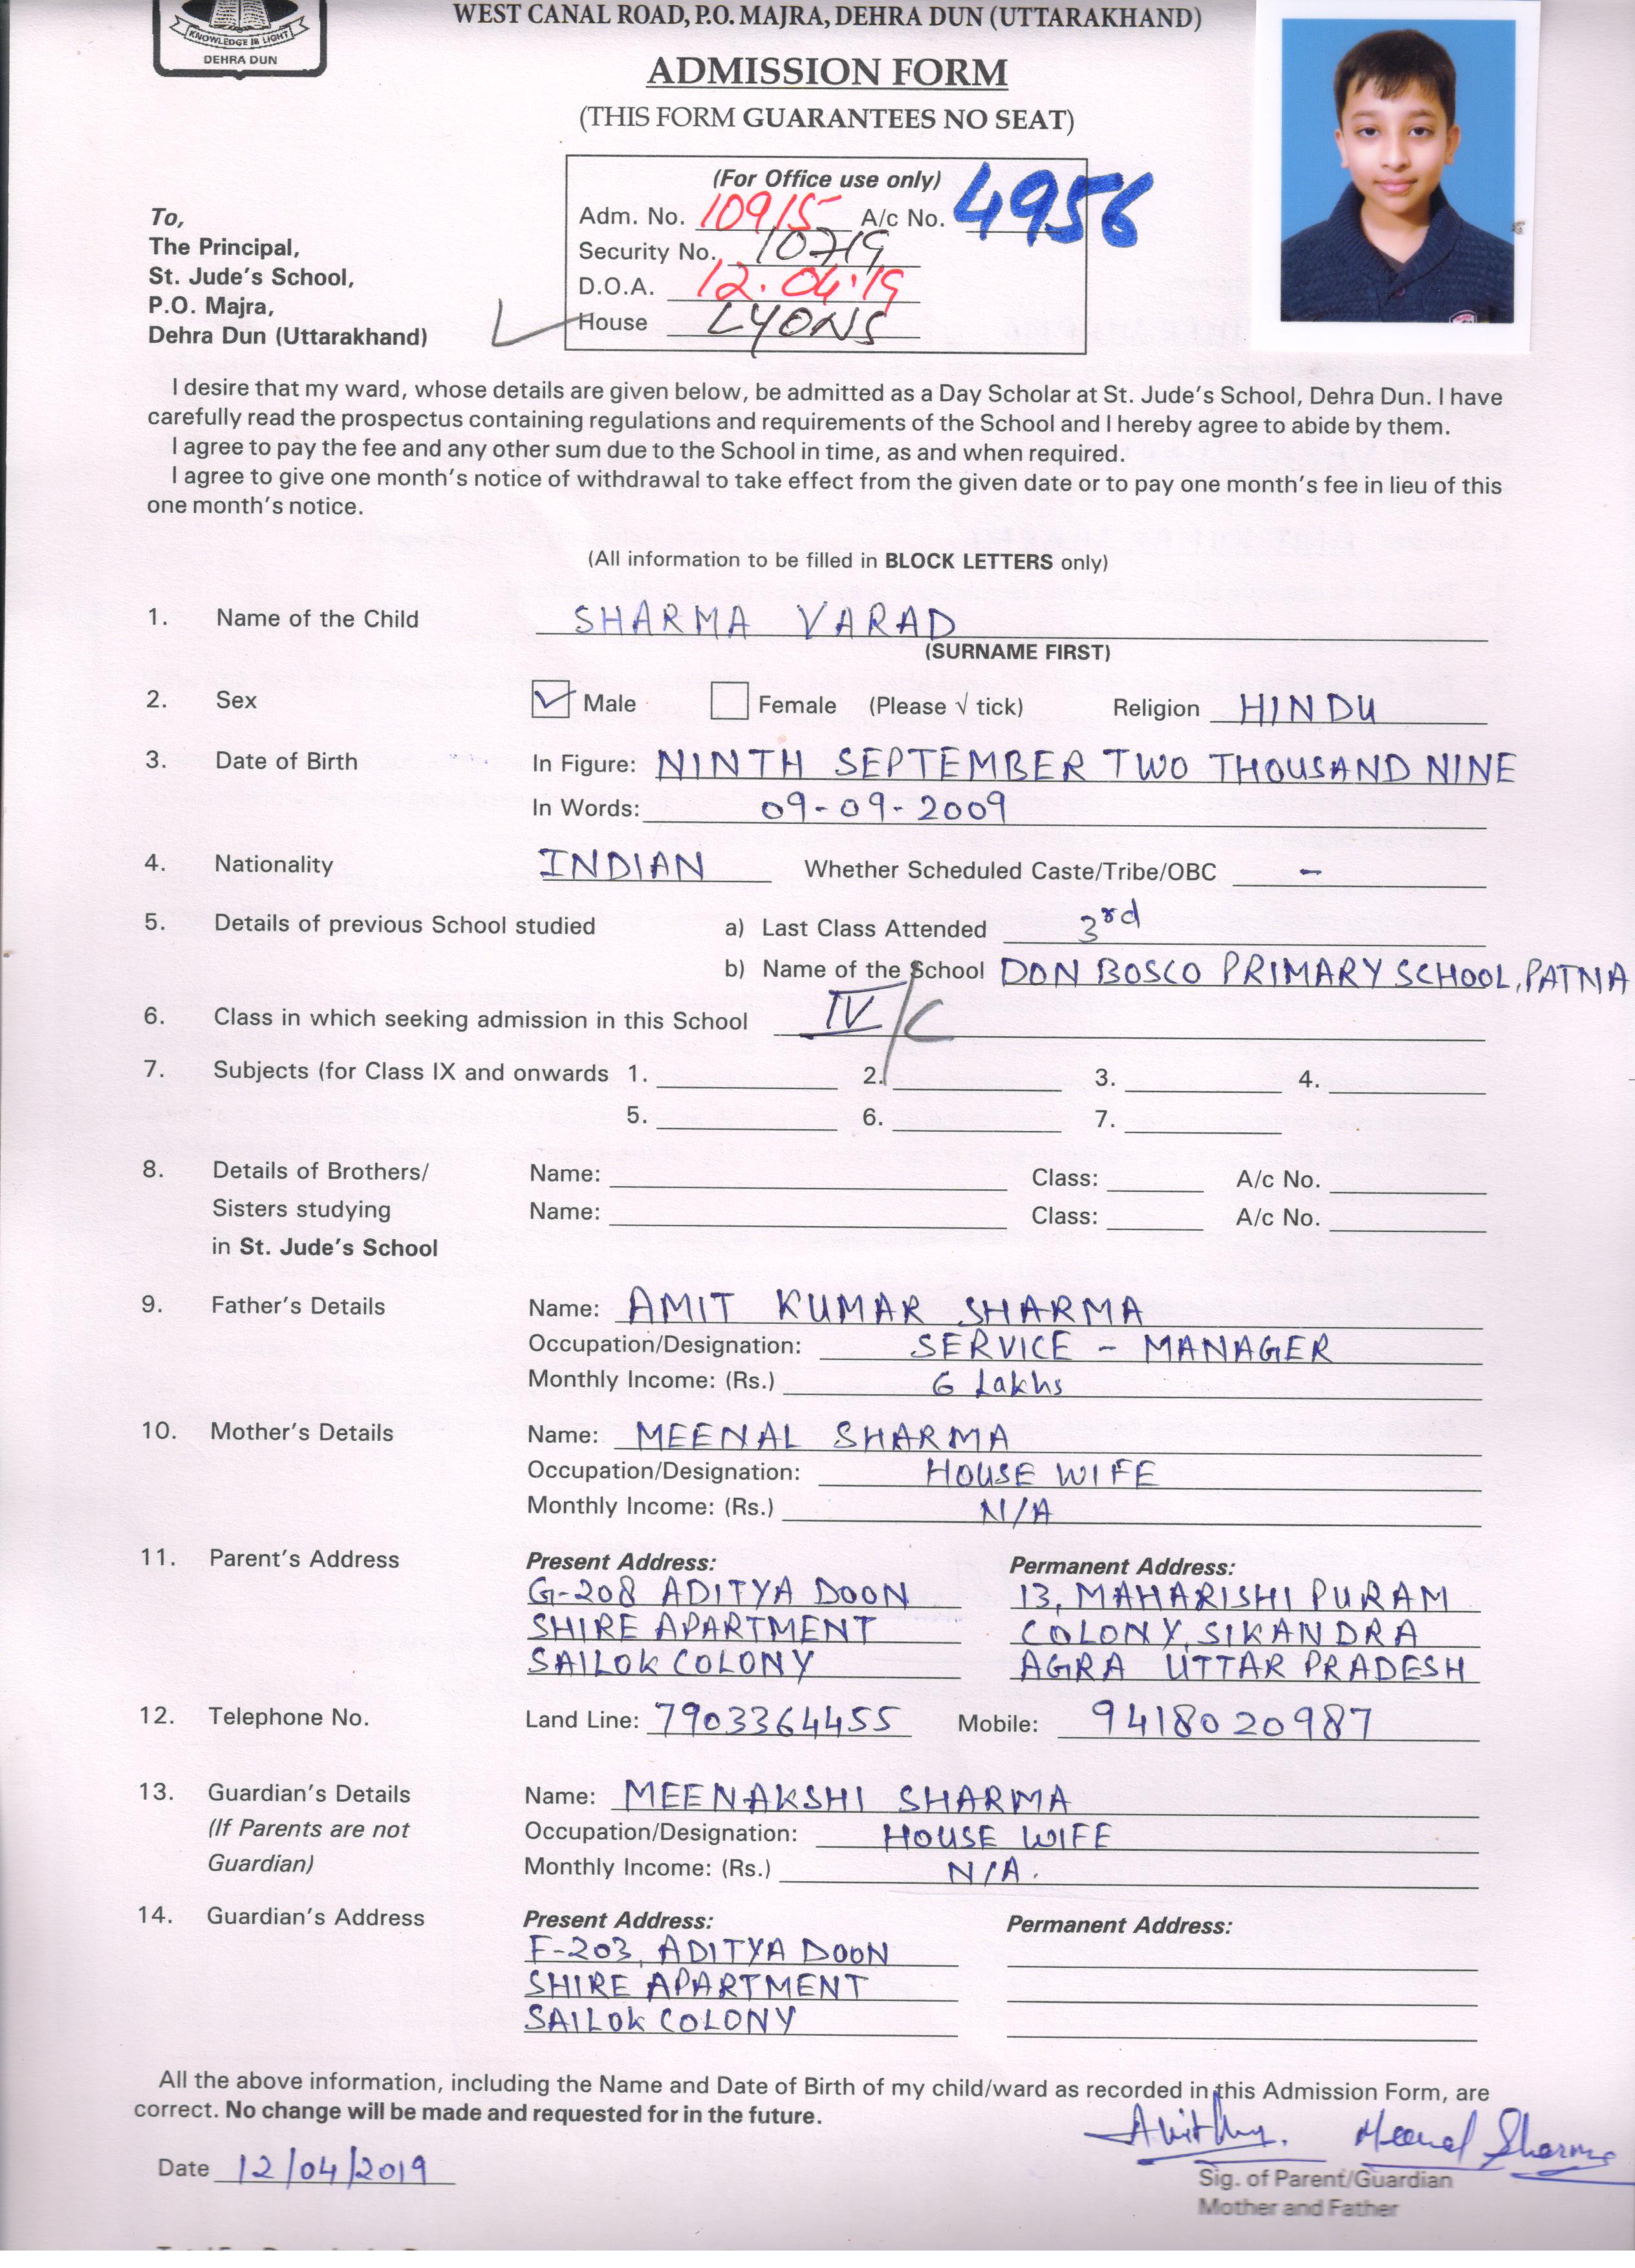 KNOWLEDGE IS LIGHT
DEHRA DUN
WEST CANAL ROAD, P.O. MAJRA, DEHRA DUN (UTTARAKHAND)
ADMISSION FORM
(THIS FORM GUARANTEES NO SEAT)
(For Office use only)
Adm. No. 10915 A/c No. 4956
Security No. 10719
D.O.A. 12.04.19
House LYONS
To,
The Principal,
St. Jude's School,
P.O. Majra,
Dehra Dun (Uttarakhand)
I desire that my ward, whose details are given below, be admitted as a Day Scholar at St. Jude's School, Dehra Dun. I have
carefully read the prospectus containing regulations and requirements of the School and I hereby agree to abide by them.
I agree to pay the fee and any other sum due to the School in time, as and when required.
I agree to give one month's notice of withdrawal to take effect from the given date or to pay one month's fee in lieu of this
one month's notice.
(All information to be filled in BLOCK LETTERS only)
1. Name of the Child SHARMA VARAD
(SURNAME FIRST)
2. Sex Male Female (Please √ tick) Religion HINDU
3. Date of Birth In Figure: NINTH SEPTEMBER TWO THOUSAND NINE
In Words: 09-09-2009
4. Nationality INDIAN Whether Scheduled Caste/Tribe/OBC -
5. Details of previous School studied a) Last Class Attended 3rd
b) Name of the School DON BOSCO PRIMARY SCHOOL, PATNA
6. Class in which seeking admission in this School IV/C
7. Subjects (for Class IX and onwards 1. 2. 3. 4.
5. 6. 7.
8. Details of Brothers/ Name: Class: A/c No.
Sisters studying Name: Class: A/c No.
in St. Jude's School
9. Father's Details Name: AMIT KUMAR SHARMA
Occupation/Designation: SERVICE - MANAGER
Monthly Income: (Rs.) 6 Lakhs
10. Mother's Details Name: MEENAL SHARMA
Occupation/Designation: HOUSE WIFE
Monthly Income: (Rs.) N/A
11. Parent's Address Present Address: Permanent Address:
G-208 ADITYA DOON 13, MAHARISHI PURAM
SHIRE APARTMENT COLONY, SIKANDRA
SAILOK COLONY AGRA UTTAR PRADESH
12. Telephone No. Land Line: 7903364455 Mobile: 9418020987
13. Guardian's Details Name: MEENAKSHI SHARMA
(If Parents are not Occupation/Designation: HOUSE WIFE
Guardian) Monthly Income: (Rs.) N/A.
14. Guardian's Address Present Address: Permanent Address:
F-203, ADITYA DOON
SHIRE APARTMENT
SAILOK COLONY
All the above information, including the Name and Date of Birth of my child/ward as recorded in this Admission Form, are
correct. No change will be made and requested for in the future.
Meenal Sharma
Date 12/04/2019
Sig. of Parent/Guardian
Mother and Father